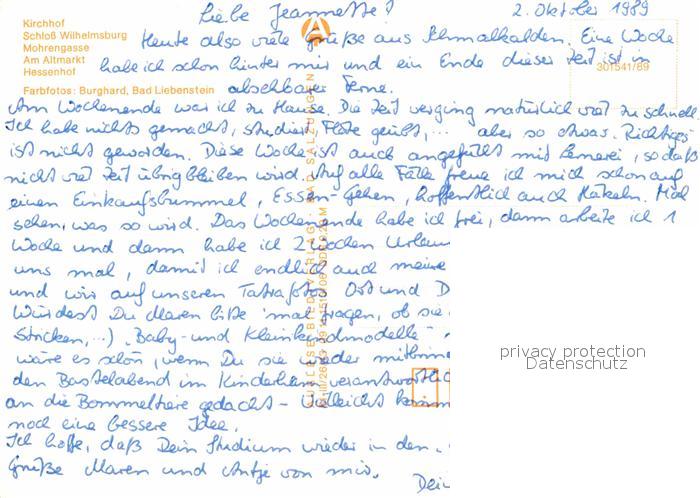 Kirchhof
Schloß Wilhelmsburg
Mohrengasse
Am Altmarkt
Hessenhof
Farbfotos: Burghard, Bad Liebenstein
301541/89
Liebe Jeannette!
2. Oktober 1989
Heute also viele Grüße aus Schmalkalden. Eine Woche
habe ich schon hinter mir und ein Ende dieser Zeit ist in
absehbarer Ferne.
Am Wochenende war ich zu Hause. Die Zeit verging natürlich viel zu schnell.
Ich habe nichts gemacht, studiert, Flöte geübt, ... aber so etwas Richtiges
ist nicht geworden. Diese Woche ist auch angefüllt mit Lernerei, so daß
nicht viel Zeit übrigbleiben wird. Auf alle Fälle freue ich mich schon auf
einen Einkaufsbummel, Essen-Gehen, hoffentlich auch Häkeln. Mal
sehen, was so wird. Das Wochenende habe ich frei, dann arbeite ich 1
Woche und dann habe ich 2 Wochen Urlau
uns mal, damit ich endlich auch meine
und wir auf unseren Tatrafotos Ost und D
Würdest Du Maren bitte 'mal fragen, ob sie
Stricken, ...) "Baby- und Kleinkindmodelle"
wäre es schön, wenn Du sie wieder mitbring
den Bastelabend im Kinderheim verantwortlic
an die Bommeltiere gedacht - vielleicht
noch eine bessere Idee.
Ich hoffe, daß Dein Studium wieder in den
Grüße Maren und Antje von mir.
Dein
privacy protection
Datenschutz